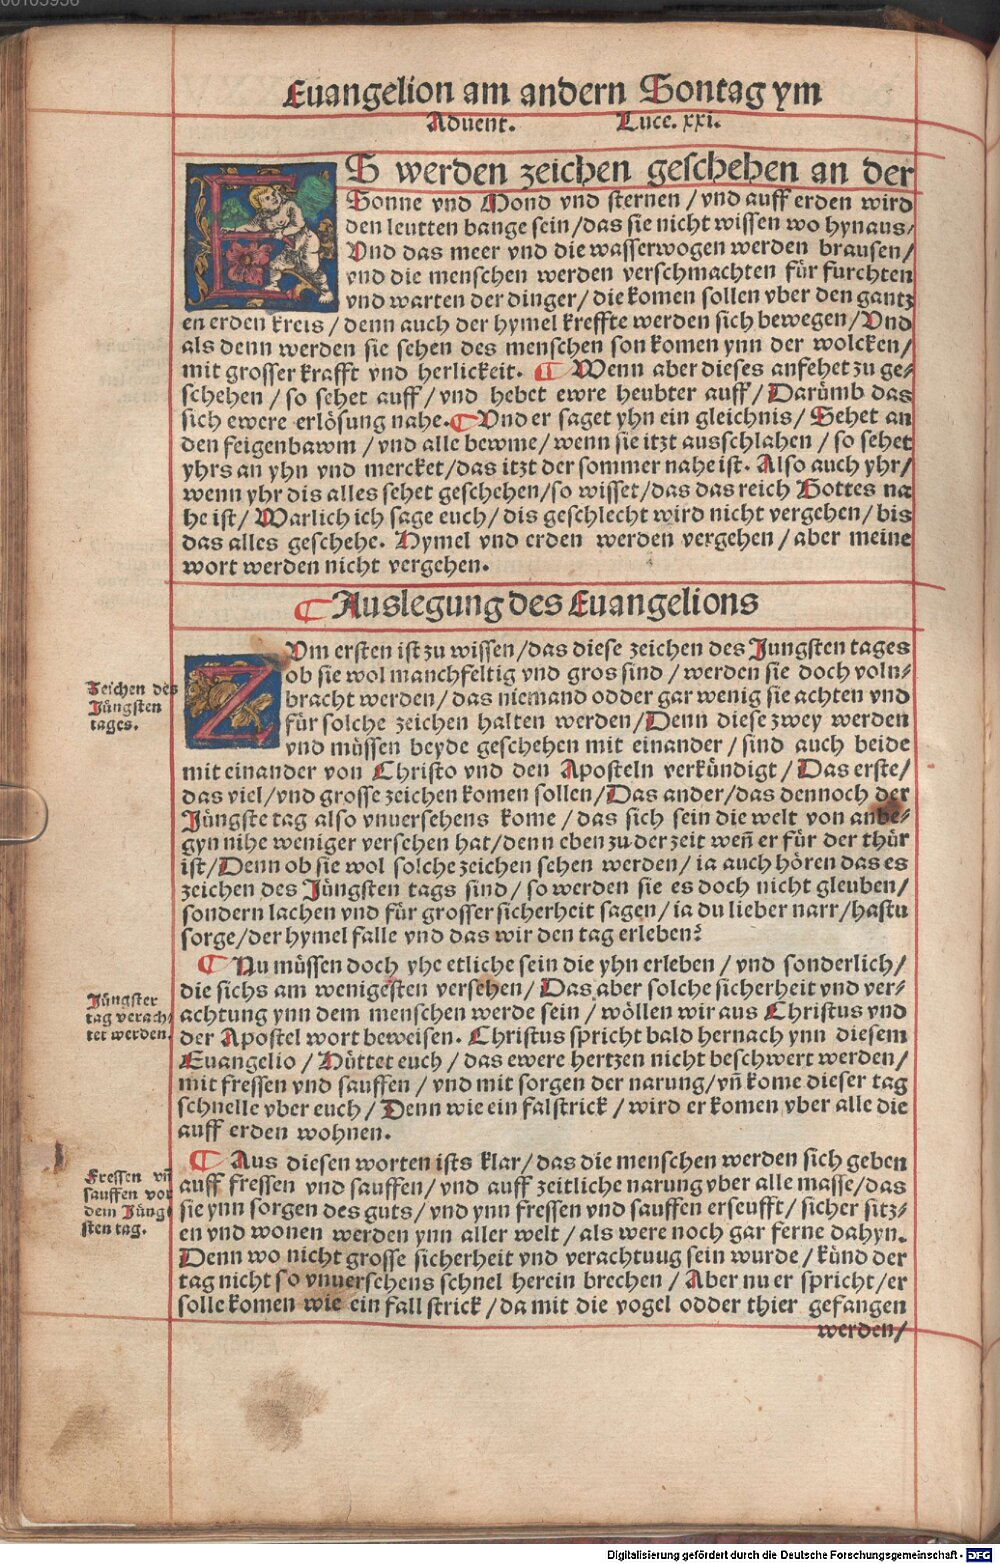 00105956
Euangelion am andern Sontag ym
Aduent. Luce. xxi.
ES werden zeichen geschehen an der
Sonne vnd Mond vnd sternen / vnd auff erden wird
den leutten bange sein / das sie nicht wissen wo hynaus /
Vnd das meer vnd die wasserwogen werden brausen /
vnd die menschen werden verschmachten für furchten
vnd warten der dinger / die komen sollen vber den gantz
en erden kreis / denn auch der hymel kreffte werden sich bewegen / Vnd
als denn werden sie sehen des menschen son komen ynn der wolcken /
mit grosser krafft vnd herlickeit. ¶ Wenn aber dieses anfehet zu ge⸗
schehen / so sehet auff / vnd hebet ewre heubter auff / Darümb das
sich ewere erlösung nahe. ¶ Vnd er saget yhn ein gleichnis / Sehet an
den feigenbawm / vnd alle bewme / wenn sie itzt ausschlahen / so sehet
yhrs an yhn vnd mercket / das itzt der sommer nahe ist. Also auch yhr /
wenn yhr dis alles sehet geschehen / so wisset / das das reich Gottes na
he ist / Warlich ich sage euch / dis geschlecht wird nicht vergehen / bis
das alles geschehe. Hymel vnd erden werden vergehen / aber meine
wort werden nicht vergehen.
¶ Auslegung des Euangelions
ZVm ersten ist zu wissen / das diese zeichen des Jungsten tages
ob sie wol manchfeltig vnd gros sind / werden sie doch voln⸗
bracht werden / das niemand odder gar wenig sie achten vnd
für solche zeichen halten werden / Denn diese zwey werden
vnd müssen beyde geschehen mit einander / sind auch beide
mit einander von Christo vnd den Aposteln verkündigt / Das erste /
das viel / vnd grosse zeichen komen sollen / Das ander / das dennoch der
Jüngste tag also vnuersehens kome / das sich sein die welt von anbe⸗
gyn nihe weniger versehen hat / denn eben zu der zeit weñ er für der thür
ist / Denn ob sie wol solche zeichen sehen werden / ia auch hören das es
zeichen des Jüngsten tags sind / so werden sie es doch nicht gleuben /
sondern lachen vnd für grosser sicherheit sagen / ia du lieber narr / hastu
sorge / der hymel falle vnd das wir den tag erleben?
¶ Nu müssen doch yhe etliche sein die yhn erleben / vnd sonderlich /
die sichs am wenigesten versehen / Das aber solche sicherheit vnd ver⸗
achtung ynn dem menschen werde sein / wöllen wir aus Christus vnd
der Apostel wort beweisen. Christus spricht bald hernach ynn diesem
Euangelio / Hüttet euch / das ewere hertzen nicht beschwert werden /
mit fressen vnd sauffen / vnd mit sorgen der narung / vñ kome dieser tag
schnelle vber euch / Denn wie ein falstrick / wird er komen vber alle die
auff erden wohnen.
¶ Aus diesen worten ists klar / das die menschen werden sich geben
auff fressen vnd sauffen / vnd auff zeitliche narung vber alle masse / das
sie ynn sorgen des guts / vnd ynn fressen vnd sauffen erseufft / sicher sitz⸗
en vnd wonen werden ynn aller welt / als were noch gar ferne dahyn.
Denn wo nicht grosse sicherheit vnd verachtuug sein wurde / künd der
tag nicht so vnuersehens schnel herein brechen / Aber nu er spricht / er
solle komen wie ein fall strick / da mit die vogel odder thier gefangen
werden /
Zeichen des
Jüngsten
tages.
Jüngster
tag verach⸗
tet werden.
Fressen vñ
sauffen vor
dem Jüng⸗
sten tag.
Digitalisierung gefördert durch die Deutsche Forschungsgemeinschaft - DFG